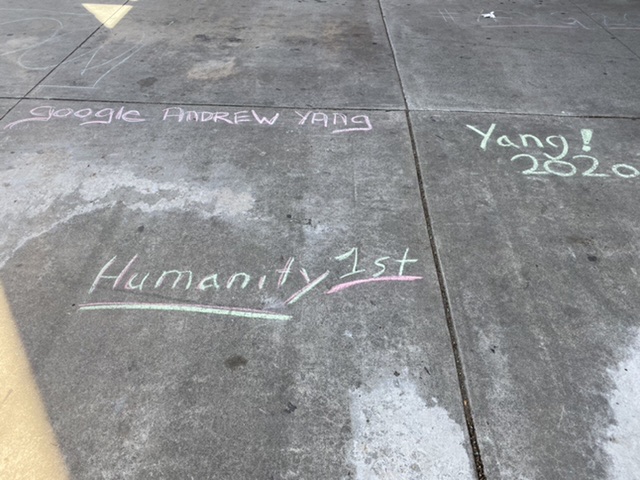 google ANDREW YANG
Yang!
2020
Humanity 1st